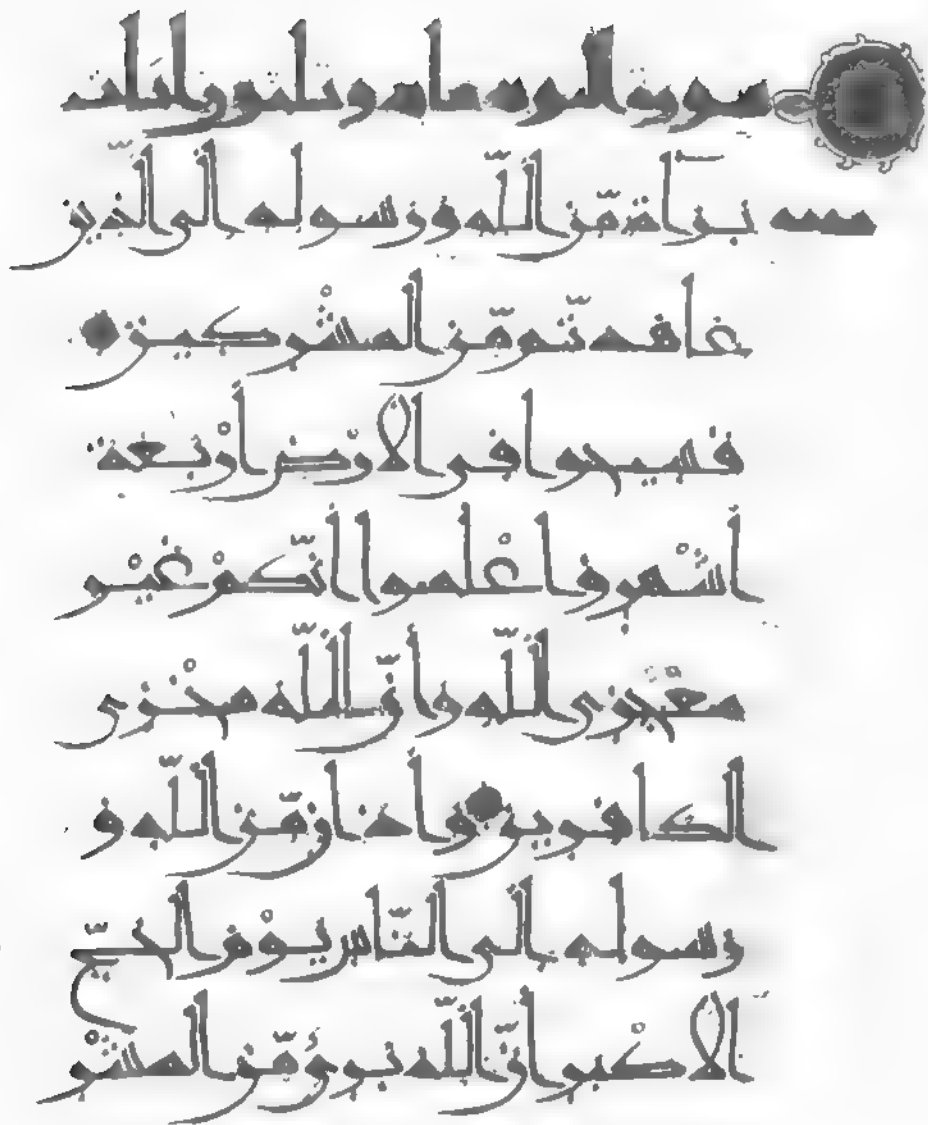 سورة التوبة مائة وثلثون ايات
برآءة مّن اللّه ورسوله الى الّذين
عاهدتّم مّن المشْركين
فسيحوا فى الارْض أرْبعة
أشْهر واعْلموا أنّكمْ غيْر
معْجزى اللّه وأنّ اللّه مخْزى
الكافرين وأذان مّن اللّه و
رسوله الى النّاس يوْم الحجّ
الاكْبر أنّ اللّه برىء مّن المشْر